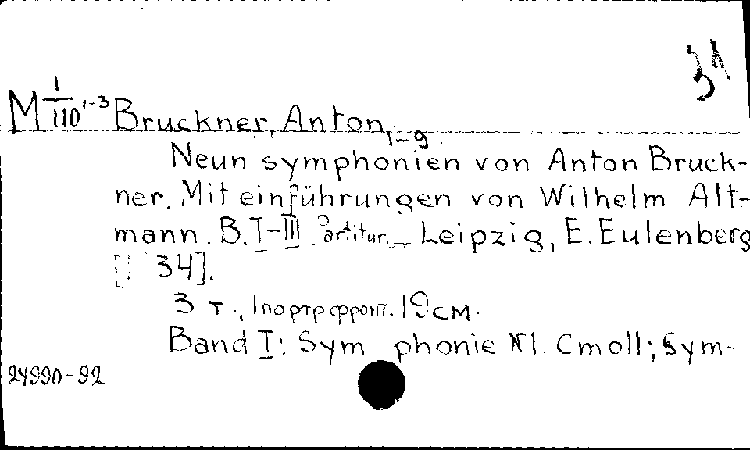 31
M 1/110 1-3 Bruckner, Anton,
1-9
Neun symphonien von Anton Bruck-
ner. Mit einführungen von Wilhelm Alt-
mann. B. I-III Partitur. Leipzig, E. Eulenberg
34].
3 т., 1 портр фронт. 19 см.
Band I: Sym phonie N1. Cmoll; Sym-
24990-92